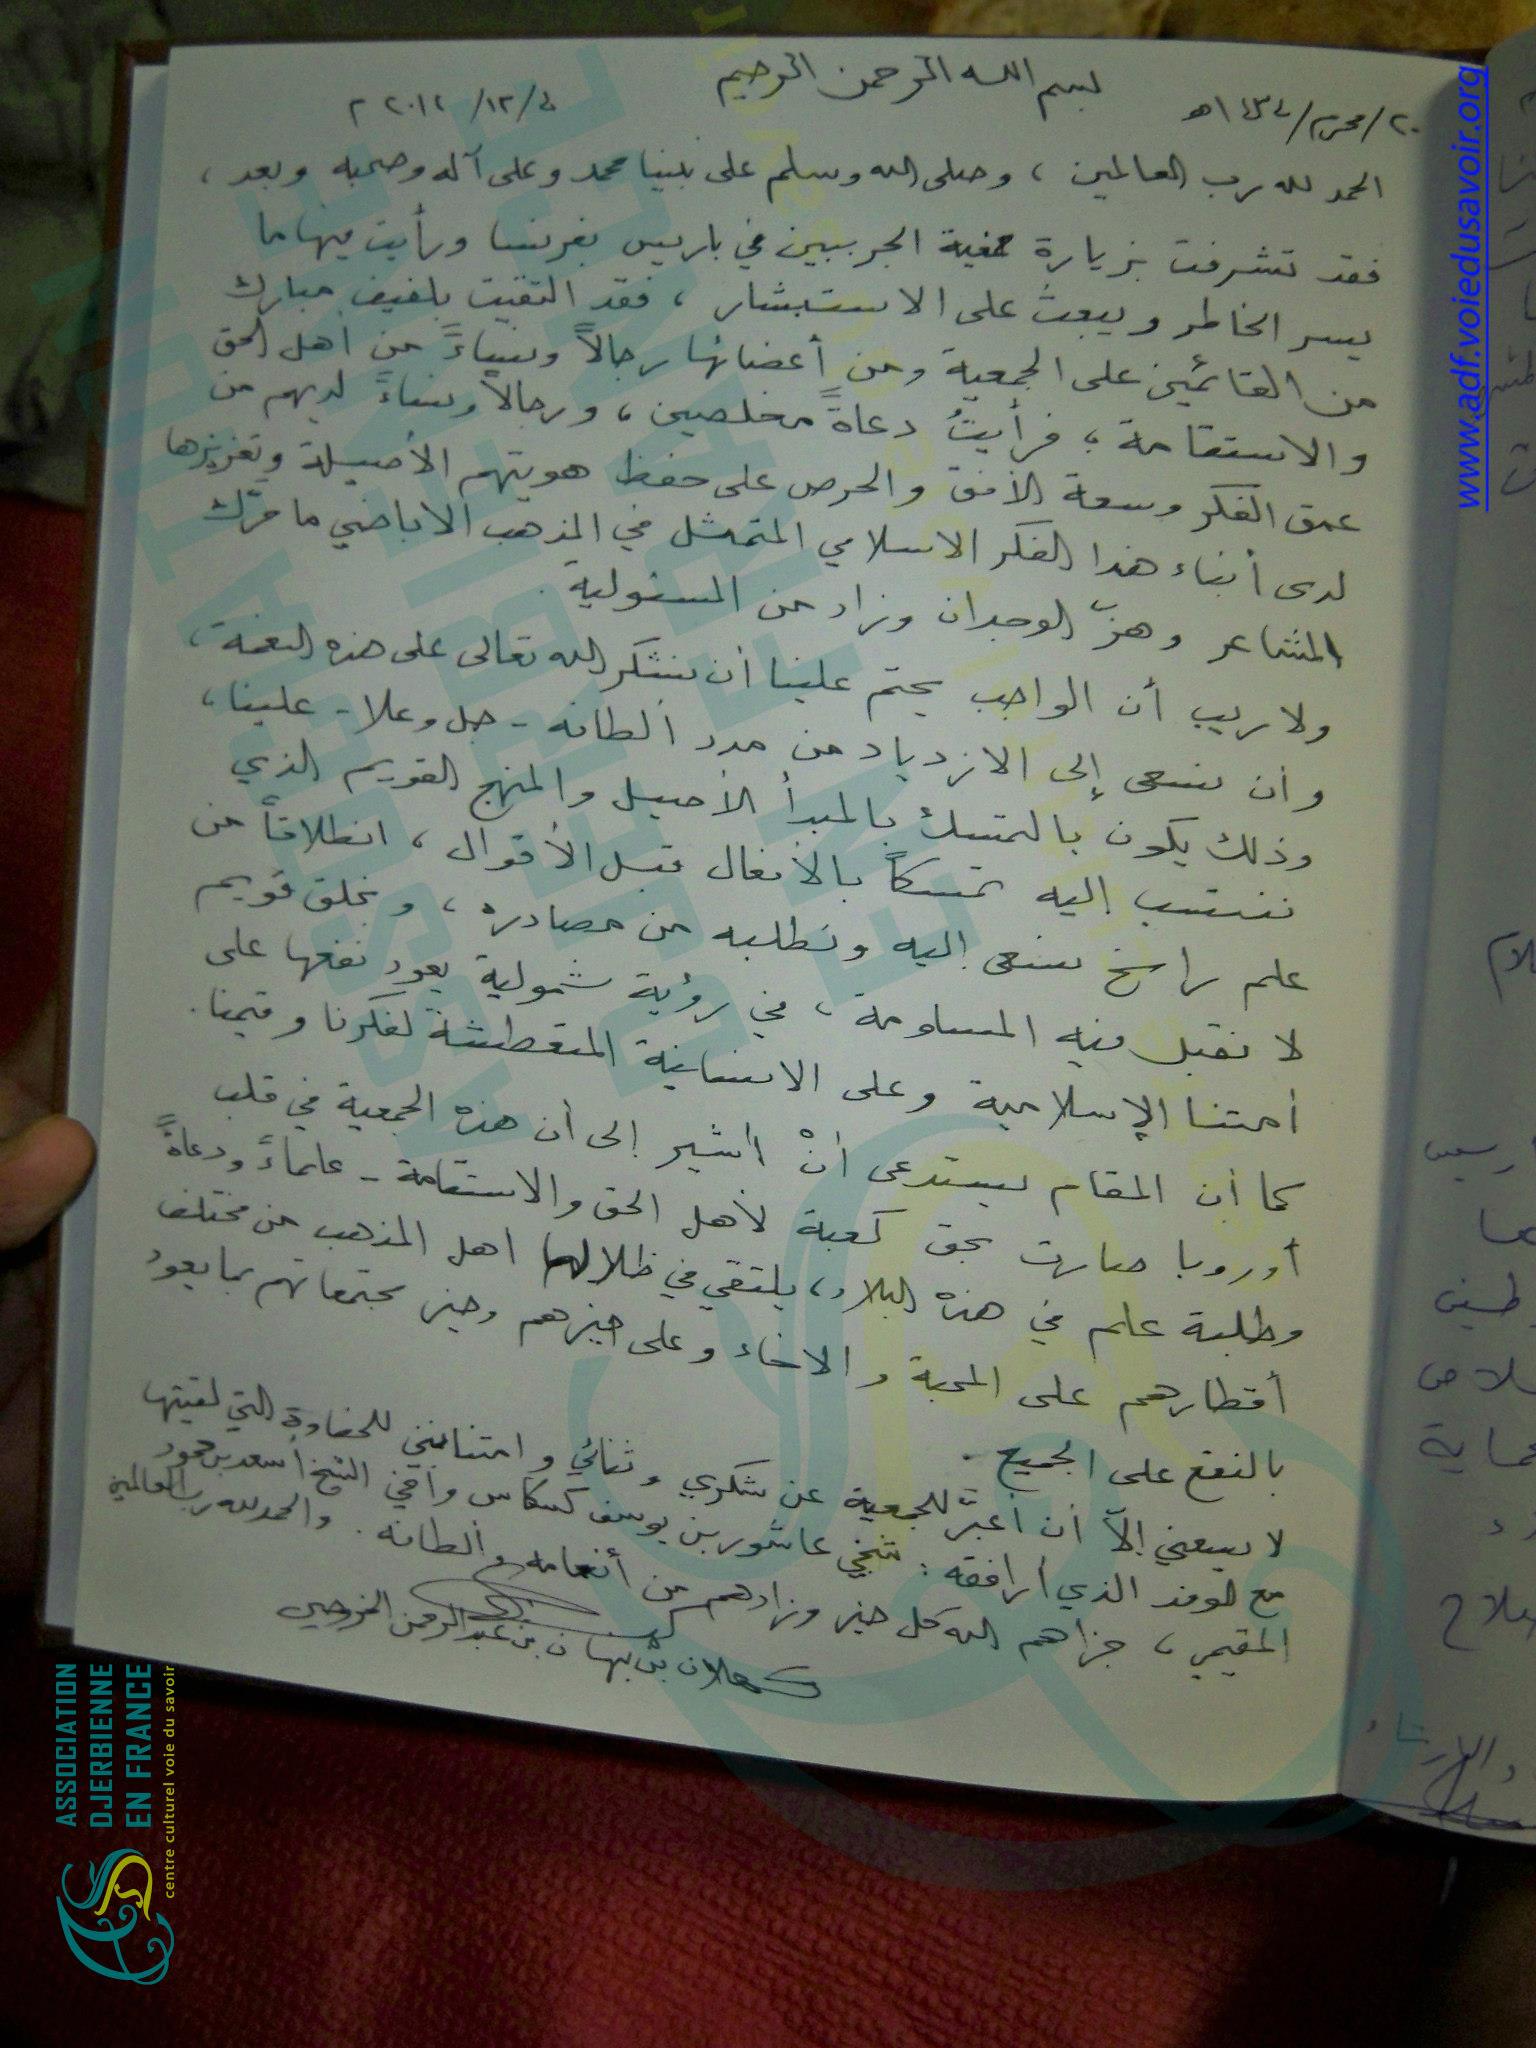 بسم الله الرحمن الرحيم
٢٠/محرم/١٤٣٤هـ
٤/١٢/٢٠١٢م
الحمد لله رب العالمين ، وصلى الله وسلم على نبينا محمد وعلى آله وصحبه وبعد ،
فقد تشرفت بزيارة جمعية الجربيين في باريس بفرنسا ورأيت فيها ما
يسر الخاطر ويبعث على الاستبشار ، فقد التقيت بلفيف مبارك
من القائمين على الجمعية ومن أعضائها رجالاً ونساءً من أهل الحق
والاستقامة ، فرأيتُ دعاةً مخلصين ، ورجالاً ونساءً لديهم من
عمق الفكر وسعة الأفق والحرص على حفظ هويتهم الأصيلة وتعزيزها
لدى أبناء هذا الفكر الاسلامي المتمثل في المذهب الاباضي ما حرّك
المشاعر وهزّ الوجدان وزاد من المسئولية .
ولا ريب أن الواجب يحتم علينا أن نشكر الله تعالى على هذه النعمة ،
وأن نسعى إلى الازدياد من مدد ألطافه - جل وعلا - علينا ،
وذلك يكون بالتمسك بالمبدأ الأصيل والمنهج القويم الذي
ننتسب إليه تمسكاً بالأفعال قبل الأقوال ، انطلاقاً من
علم راسخ نسعى إليه ونطلبه من مصادره ، وخلق قويم
لا نقبل فيه المساومة ، في رؤية شمولية يعود نفعها على
أمتنا الإسلامية وعلى الانسانية المتعطشة لفكرنا وقيمنا .
كما أن المقام يستدعى أنْ أشير إلى أن هذه الجمعية في قلب
أوروبا صارت بحق كعبة لأهل الحق والاستقامة - علماءً ودعاةً
وطلبة علم في هذه البلاد ، يلتقي في ظلالها أهل المذهب من مختلف
أقطارهم على المحبة والاخاء وعلى خيرهم وخير مجتمعاتهم بما يعود
بالنفع على الجميع .
لا يسعني إلاّ أن أعبّر للجمعية عن شكري وثنائي وامتناني للحفاوة التي لقيتها
مع الوفد الذي أرافقه : شيخي عاشور بن يوسف كسكاس وأخي الشيخ أسعد بن حمود
المقيمي ، جزاهم الله كل خير وزادهم من أنعامه وألطافه . والحمد لله رب العالمين
كهلان بن نبهان بن عبدالرحمن الخروصي
www.adf.voiedusavoir.org
ASSOCIATION
DJERBIENNE
EN FRANCE
centre culturel voie du savoir